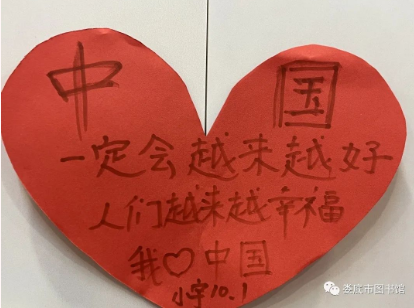 中国
一定会越来越好
人们越来越幸福
我♡中国
小宇10.1
娄底市图书馆